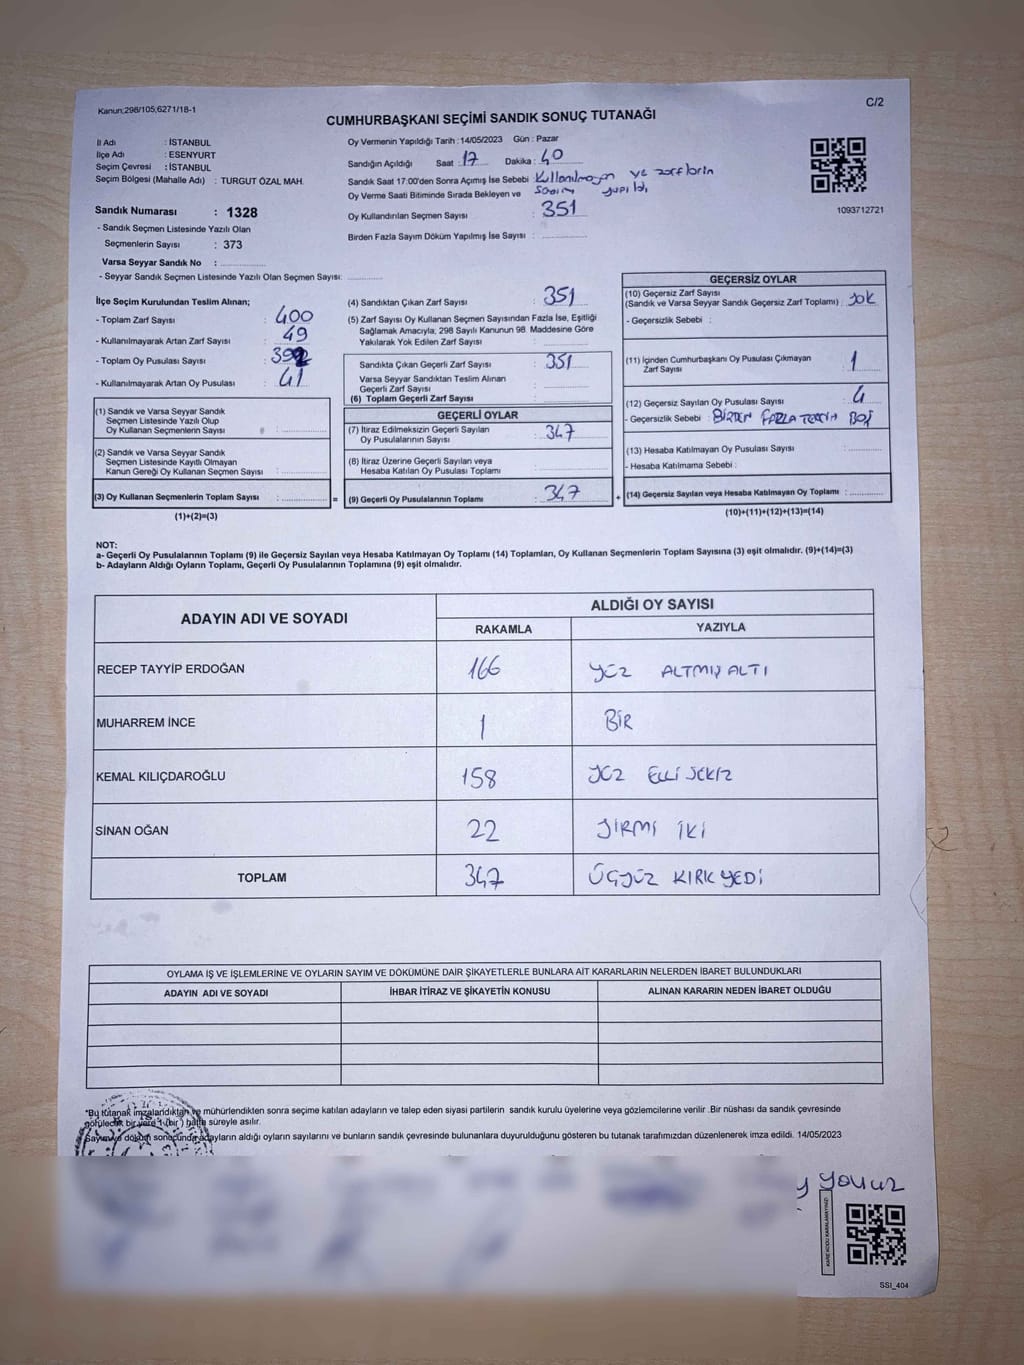 Kanun;298/105,6271/18-1
C/2
CUMHURBAŞKANI SEÇİMİ SANDIK SONUÇ TUTANAĞI
İl Adı : İSTANBUL
İlçe Adı : ESENYURT
Seçim Çevresi : İSTANBUL
Seçim Bölgesi (Mahalle Adı) : TURGUT ÖZAL MAH.
Oy Vermenin Yapıldığı Tarih : 14/05/2023 Gün : Pazar
Sandığın Açıldığı Saat : 17 Dakika : 40
Sandık Saat 17:00'den Sonra Açımış İse Sebebi Kullanılmayan ve zarfların
Oy Verme Saati Bitiminde Sırada Bekleyen ve sayım yapıldı
Oy Kullandırılan Seçmen Sayısı : 351
Birden Fazla Sayım Döküm Yapılmış İse Sayısı :
1093712721
Sandık Numarası : 1328
- Sandık Seçmen Listesinde Yazılı Olan
Seçmenlerin Sayısı : 373
Varsa Seyyar Sandık No :
- Seyyar Sandık Seçmen Listesinde Yazılı Olan Seçmen Sayısı:
İlçe Seçim Kurulundan Teslim Alınan;
- Toplam Zarf Sayısı : 400
- Kullanılmayarak Artan Zarf Sayısı : 49
- Toplam Oy Pusulası Sayısı : 392
- Kullanılmayarak Artan Oy Pusulası : 41
(1) Sandık ve Varsa Seyyar Sandık
Seçmen Listesinde Yazılı Olup
Oy Kullanan Seçmenlerin Sayısı :
(2) Sandık ve Varsa Seyyar Sandık
Seçmen Listesinde Kayıtlı Olmayan
Kanun Gereği Oy Kullanan Seçmen Sayısı :
(3) Oy Kullanan Seçmenlerin Toplam Sayısı : =
(1)+(2)=(3)
(4) Sandıktan Çıkan Zarf Sayısı : 351
(5) Zarf Sayısı Oy Kullanan Seçmen Sayısından Fazla İse, Eşitliği
Sağlamak Amacıyla, 298 Sayılı Kanunun 98. Maddesine Göre
Yakılarak Yok Edilen Zarf Sayısı :
Sandıkta Çıkan Geçerli Zarf Sayısı : 351
Varsa Seyyar Sandıktan Teslim Alınan
Geçerli Zarf Sayısı :
(6) Toplam Geçerli Zarf Sayısı :
GEÇERLİ OYLAR
(7) İtiraz Edilmeksizin Geçerli Sayılan
Oy Pusulalarının Sayısı : 347
(8) İtiraz Üzerine Geçerli Sayılan veya
Hesaba Katılan Oy Pusulası Toplamı :
(9) Geçerli Oy Pusulalarının Toplamı : 347 +
GEÇERSİZ OYLAR
(10) Geçersiz Zarf Sayısı
(Sandık ve Varsa Seyyar Sandık Geçersiz Zarf Toplamı) : Yok
- Geçersizlik Sebebi :
(11) İçinden Cumhurbaşkanı Oy Pusulası Çıkmayan
Zarf Sayısı : 1
(12) Geçersiz Sayılan Oy Pusulası Sayısı : 4
- Geçersizlik Sebebi : BİRDEN FAZLA TERCİH BOŞ
(13) Hesaba Katılmayan Oy Pusulası Sayısı :
- Hesaba Katılmama Sebebi :
(14) Geçersiz Sayılan veya Hesaba Katılmayan Oy Toplamı :
(10)+(11)+(12)+(13)=(14)
NOT:
a- Geçerli Oy Pusulalarının Toplamı (9) ile Geçersiz Sayılan veya Hesaba Katılmayan Oy Toplamı (14) Toplamları, Oy Kullanan Seçmenlerin Toplam Sayısına (3) eşit olmalıdır. (9)+(14)=(3)
b- Adayların Aldığı Oyların Toplamı, Geçerli Oy Pusulalarının Toplamına (9) eşit olmalıdır.
ADAYIN ADI VE SOYADI
ALDIĞI OY SAYISI
RAKAMLA YAZIYLA
RECEP TAYYİP ERDOĞAN 166 YÜZ ALTMIŞ ALTI
MUHARREM İNCE 1 BİR
KEMAL KILIÇDAROĞLU 158 YÜZ ELLİ SEKİZ
SİNAN OĞAN 22 YİRMİ İKİ
TOPLAM 347 ÜÇYÜZ KIRK YEDİ
OYLAMA İŞ VE İŞLEMLERİNE VE OYLARIN SAYIM VE DÖKÜMÜNE DAİR ŞİKAYETLERLE BUNLARA AİT KARARLARIN NELERDEN İBARET BULUNDUKLARI
ADAYIN ADI VE SOYADI İHBAR İTİRAZ VE ŞİKAYETİN KONUSU ALINAN KARARIN NEDEN İBARET OLDUĞU
*Bu tutanak imzalandıktan ve mühürlendikten sonra seçime katılan adayların ve talep eden siyasi partilerin sandık kurulu üyelerine veya gözlemcilerine verilir .Bir nüshası da sandık çevresinde
görülecek bir yere 1 (bir ) hafta süreyle asılır.
Sayım ve döküm sonucunda adayların aldığı oyların sayılarını ve bunların sandık çevresinde bulunanlara duyurulduğunu gösteren bu tutanak tarafımızdan düzenlenerek imza edildi. 14/05/2023
Yavuz
KARE KODU KARALAMAYINIZ!
SSI_404